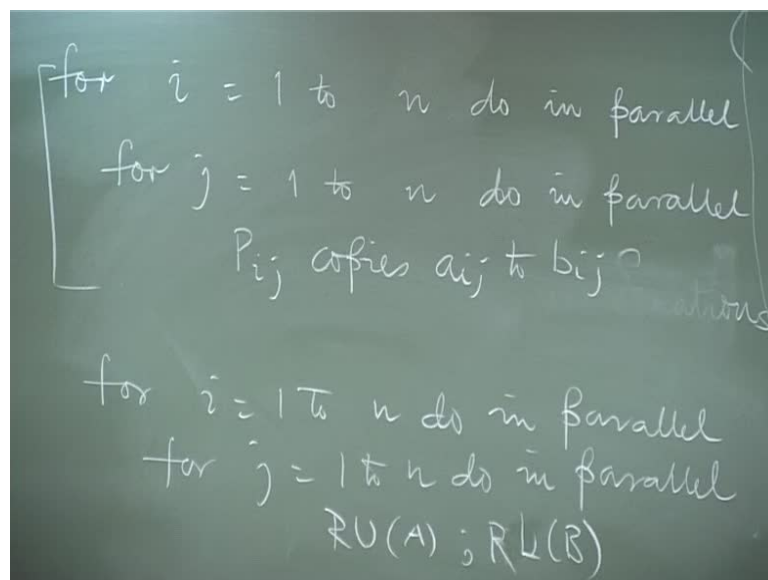 for i = 1 to n do in parallel
for j = 1 to n do in parallel
Pij copies aij to bij
for i = 1 To n do in parallel
for j = 1 to n do in parallel
RU(A) ; RL(B)